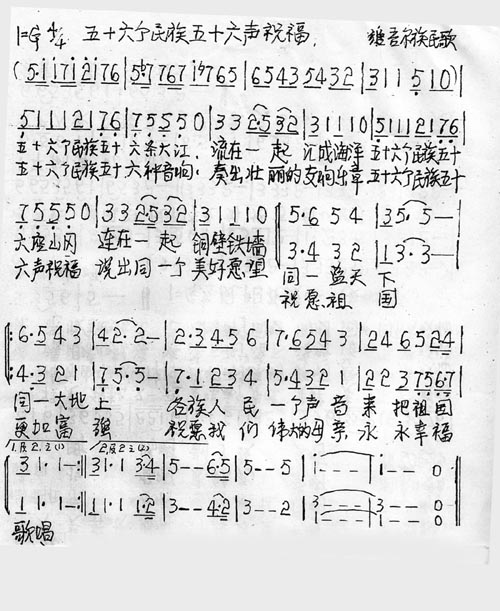 1=G 4/4 五十六个民族五十六声祝福. 维吾尔族民歌
(5·1 1 7 1 2 1 7 6 | 5 6 7 7 6 7 1 7 6 5 | 6 5 4 3 5 4 3 2 | 3 1 1 5 1 0) |
5 1 1 1 2 1 7 6 | 7 5 5 5 0 | 3 3 2·5 3 2 | 3 1 1 1 0 | 5 1 1 1 2 1 7 6 |
五十六个民族五十 六条大江, 流在一 起 汇成海洋 五十六个民族五十
五十六个民族五十 六种音响; 奏出壮 丽的交响乐章 五十六个民族五十
7 5 5 5 0 | 3 3 2·5 3 2 | 3 1 1 1 0 | 5·6 5 4 | 3 5· 5 — |
3·4 3 2 | 1 3· 3 — |
六座山冈 连在一 起 铜壁铁墙 同一蓝天 下
六声祝福 说出同 一个美好愿望 祝愿祖 国
6·5 4 3 | 4 2· 2 — | 2·3 4 5 6 | 7·6 5 4 3 | 2 4 6 5 2 4 |
4·3 2 1 | 7 5· 5 — | 7·1 2 3 4 | 5·4 3 2 1 | 2 2 3 7 5 6 7 |
同一大地 上 各族人 民 一个声音 来 把祖国
更加富 强 祝愿我 们 伟大的母亲 永 永幸福
1.及2.之(1) 2.及2之(2)
3 1· 1 — :|| 3 1· 1 3 4 | 5 — — 6·5 | 5 — — 5 | 1 — — — | 1 — — 0 ||
1 1· 1 — :|| 1 1· 1 1·2 | 3 — — 4·2 | 3 — — 2 | 3 1 — — — | 3 1 — — 0 0 ||
歌唱